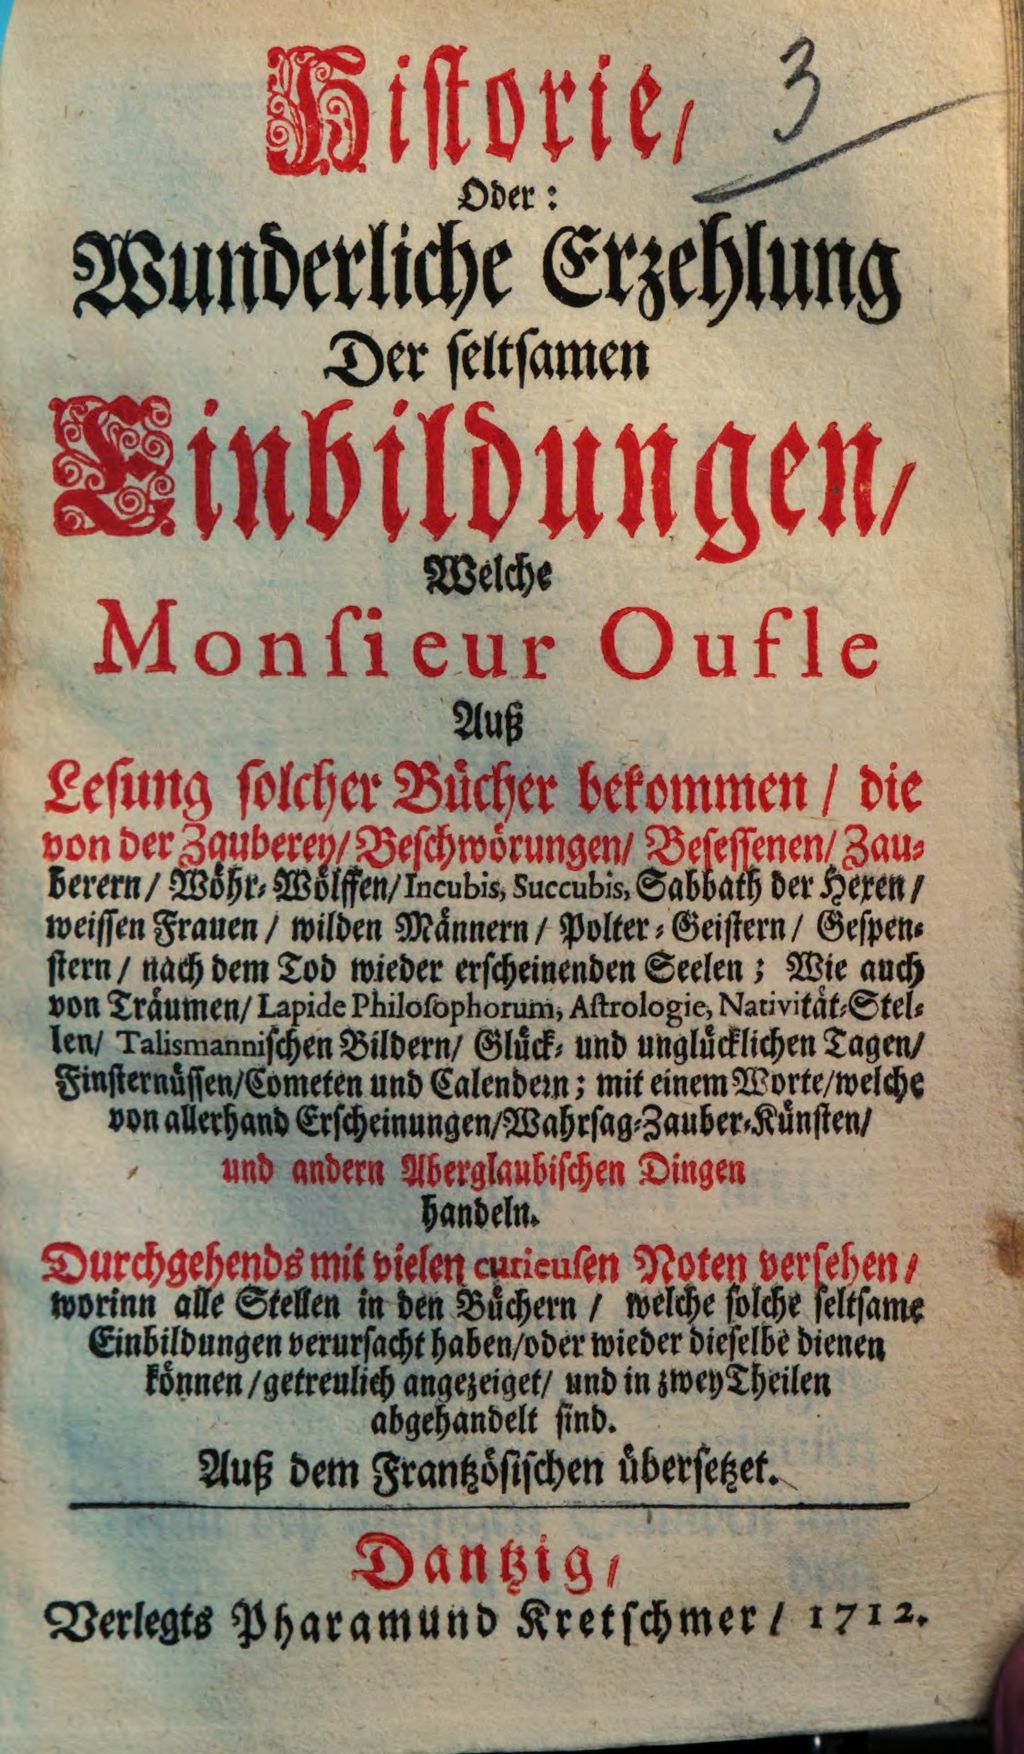 Historie/
3
Oder:
Wunderliche Erzehlung
Der seltsamen
Einbildungen/
Welche
Monſieur Oufle
Auß
Lesung solcher Bücher bekommen / die
von der Zauberey/ Beschwörungen/ Besessenen/ Zau-
berern/ Wöhr-Wölffen/ Incubis, Succubis, Sabbath der Hexen /
weissen Frauen / wilden Männern / Polter-Geistern / Gespen-
stern / nach dem Tod wieder erscheinenden Seelen; Wie auch
von Träumen/ Lapide Philoſophorum, Aſtrologie, Nativität-Stel-
len/ Talismannischen Bildern/ Glück- und unglücklichen Tagen/
Finsternüssen/Cometen und Calendern; mit einem Worte/welche
von allerhand Erscheinungen/Wahrsag-Zauber-Künsten/
und andern Aberglaubischen Dingen
handeln.
Durchgehends mit vielen curieuſen Noten versehen/
worinn alle Stellen in den Büchern / welche solche seltsame
Einbildungen verursacht haben/oder wieder dieselbe dienen
können/getreulich angezeiget/ und in zwey Theilen
abgehandelt sind.
Auß dem Frantzösischen übersetzet.
Dantzig/
Verlegts Pharamund Kretschmer / 1712.